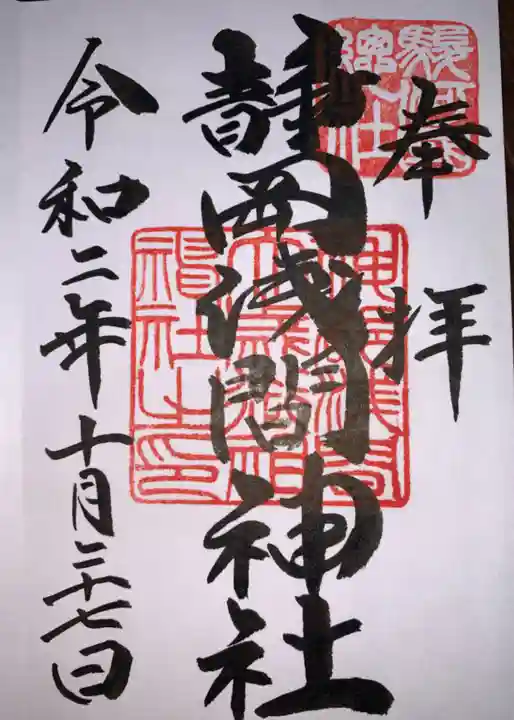 奉拝
駿河總社
静岡浅間神社
令和二年十月二十七日